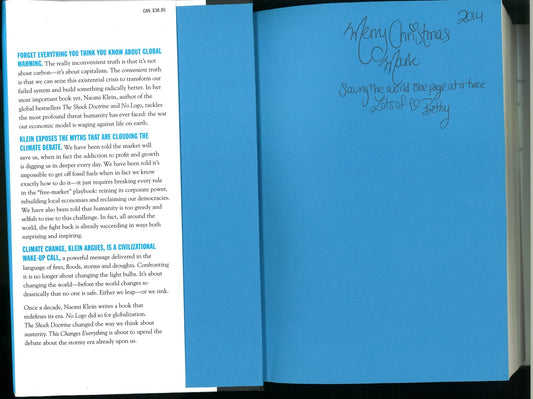 CAN. $36.95
FORGET EVERYTHING YOU THINK YOU KNOW ABOUT GLOBAL
WARMING. The really inconvenient truth is that it's not
about carbon—it's about capitalism. The convenient truth
is that we can seize this existential crisis to transform our
failed system and build something radically better. In her
most important book yet, Naomi Klein, author of the
global bestsellers The Shock Doctrine and No Logo, tackles
the most profound threat humanity has ever faced: the war
our economic model is waging against life on earth.
KLEIN EXPOSES THE MYTHS THAT ARE CLOUDING THE
CLIMATE DEBATE. We have been told the market will
save us, when in fact the addiction to profit and growth
is digging us in deeper every day. We have been told it's
impossible to get off fossil fuels when in fact we know
exactly how to do it—it just requires breaking every rule
in the "free-market" playbook: reining in corporate power,
rebuilding local economies and reclaiming our democracies.
We have also been told that humanity is too greedy and
selfish to rise to this challenge. In fact, all around the
world, the fight back is already succeeding in ways both
surprising and inspiring.
CLIMATE CHANGE, KLEIN ARGUES, IS A CIVILIZATIONAL
WAKE-UP CALL, a powerful message delivered in the
language of fires, floods, storms and droughts. Confronting
it is no longer about changing the light bulbs. It's about
changing the world—before the world changes so
drastically that no one is safe. Either we leap—or we sink.
Once a decade, Naomi Klein writes a book that
redefines its era. No Logo did so for globalization.
The Shock Doctrine changed the way we think about
austerity. This Changes Everything is about to upend the
debate about the stormy era already upon us.
2014
Merry Christmas
Mark
Saving the world one page at a time
Lots of ♡ Bethy